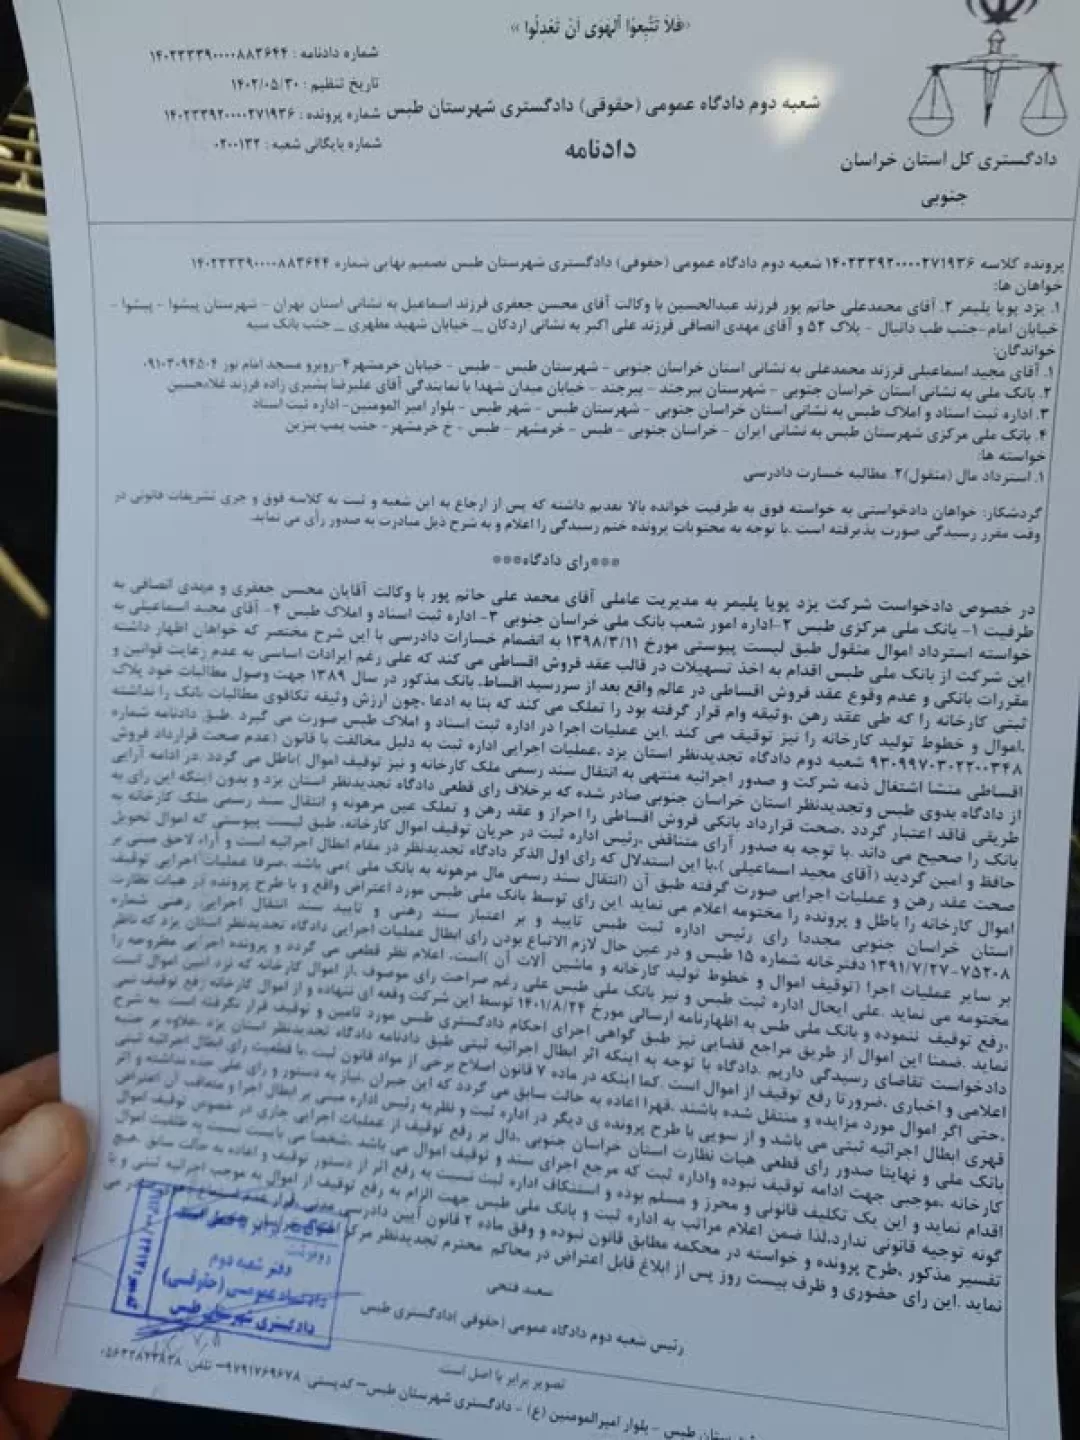 «فَلاَ تَتَّبِعوُا اَلهَوَی اَنْ تَعْدِلُوا »
شماره دادنامه : ۱۴۰۲۳۳۳۹۰۰۰۰۸۸۳۶۴۴
تاریخ تنظیم : ۱۴۰۲/۰۵/۳۰
شعبه دوم دادگاه عمومی (حقوقی) دادگستری شهرستان طبس شماره پرونده : ۱۴۰۲۳۳۹۲۰۰۰۰۲۷۱۹۳۶
شماره بایگانی شعبه : ۰۲۰۰۱۳۲
دادنامه
دادگستری کل استان خراسان
جنوبی
پرونده کلاسه ۱۴۰۲۳۳۹۲۰۰۰۰۲۷۱۹۳۶ شعبه دوم دادگاه عمومی (حقوقی) دادگستری شهرستان طبس تصمیم نهایی شماره ۱۴۰۲۳۳۳۹۰۰۰۰۸۸۳۶۴۴
خواهان ها:
۱. یزد پویا پلیمر ۲. آقای محمدعلی حاتم پور فرزند عبدالحسین با وکالت آقای محسن جعفری فرزند اسماعیل به نشانی استان تهران - شهرستان پیشوا - پیشوا -
خیابان امام-جنب طب دانیال - پلاک ۵۲ و آقای مهدی انصافی فرزند علی اکبر به نشانی اردکان _ خیابان شهید مطهری _ جنب بانک سپه
خواندگان:
۱. آقای مجید اسماعیلی فرزند محمدعلی به نشانی استان خراسان جنوبی - شهرستان طبس - طبس - خیابان خرمشهر۴-روبرو مسجد امام نور ۰۹۱۰۳۰۹۴۵۰۴
۲. بانک ملی به نشانی استان خراسان جنوبی - شهرستان بیرجند - بیرجند - خیابان میدان شهدا با نمایندگی آقای علیرضا بشیری زاده فرزند غلامحسین
۳. اداره ثبت اسناد و املاک طبس به نشانی استان خراسان جنوبی - شهرستان طبس - شهر طبس - بلوار امیر المومنین- اداره ثبت اسناد
۴. بانک ملی مرکزی شهرستان طبس به نشانی ایران - خراسان جنوبی - طبس - خرمشهر - طبس - خ خرمشهر- جنب پمپ بنزین
خواسته ها:
۱. استرداد مال (منقول)۲. مطالبه خسارت دادرسی
گردشکار: خواهان دادخواستی به خواسته فوق به طرفیت خوانده بالا تقدیم داشته که پس از ارجاع به این شعبه و ثبت به کلاسه فوق و جری تشریفات قانونی در
وقت مقرر رسیدگی صورت پذیرفته است .با توجه به محتویات پرونده ختم رسیدگی را اعلام و به شرح ذیل مبادرت به صدور رأی می نماید.
***رای دادگاه***
در خصوص دادخواست شرکت یزد پویا پلیمر به مدیریت عاملی آقای محمد علی حاتم پور با وکالت آقایان محسن جعفری و مهدی انصافی به
طرفیت ۱- بانک ملی مرکزی طبس ۲-اداره امور شعب بانک ملی خراسان جنوبی ۳- اداره ثبت اسناد و املاک طبس ۴- آقای مجید اسماعیلی به
خواسته استرداد اموال منقول طبق لیست پیوستی مورخ ۱۳۹۸/۳/۱۱ به انضمام خسارات دادرسی با این شرح مختصر که خواهان اظهار داشته
این شرکت از بانک ملی طبس اقدام به اخذ تسهیلات در قالب عقد فروش اقساطی می کند که علی رغم ایرادات اساسی به عدم رعایت قوانین و
مقررات بانکی و عدم وقوع عقد فروش اقساطی در عالم واقع بعد از سررسید اقساط، بانک مذکور در سال ۱۳۸۹ جهت وصول مطالبات خود پلاک
ثبتی کارخانه را که طی عقد رهن ،وثیقه وام قرار گرفته بود را تملک می کند که بنا به ادعا ،چون ارزش وثیقه تکافوی مطالبات بانک را نداشته
،اموال و خطوط تولید کارخانه را نیز توقیف می کند .این عملیات اجرا در اداره ثبت اسناد و املاک طبس صورت می گیرد .طبق دادنامه شماره
۹۳۰۹۹۷۰۳۰۲۲۰۰۳۴۸ شعبه دوم دادگاه تجدیدنظر استان یزد ،عملیات اجرایی اداره ثبت به دلیل مخالفت با قانون (عدم صحت قرارداد فروش
اقساطی منشا اشتغال ذمه شرکت و صدور اجرائیه منتهی به انتقال سند رسمی ملک کارخانه و نیز توقیف اموال )باطل می گردد .در ادامه آرایی
از دادگاه بدوی طبس وتجدیدنظر استان خراسان جنوبی صادر شده که برخلاف رای قطعی دادگاه تجدیدنظر استان یزد و بدون اینکه این رای به
طریقی فاقد اعتبار گردد ،صحت قرارداد بانکی فروش اقساطی را احراز و عقد رهن و تملک عین مرهونه و انتقال سند رسمی ملک کارخانه به
بانک را صحیح می داند .با توجه به صدور آرای متناقض ،رئیس اداره ثبت در جریان توقیف اموال کارخانه، طبق لیست پیوستی که اموال تحویل
حافظ و امین گردید (آقای مجید اسماعیلی )،با این استدلال که رای اول الذکر دادگاه تجدیدنظر در مقام ابطال اجرائیه است و آراء لاحق مبنی بر
صحت عقد رهن و عملیات اجرایی صورت گرفته طبق آن (انتقال سند رسمی مال مرهونه به بانک ملی )می باشد ،صرفا عملیات اجرایی توقیف
اموال کارخانه را باطل و پرونده را مختومه اعلام می نماید .این رای توسط بانک ملی طبس مورد اعتراض واقع و با طرح پرونده در هیات نظارت
استان خراسان جنوبی مجددا رای رئیس اداره ثبت طبس تایید و بر اعتبار سند رهنی و تایید سند انتقال اجرایی رهنی شماره
۷۵۲۰۸-۱۳۹۱/۷/۲۷ دفترخانه شماره ۱۵ طبس و در عین حال لازم الاتباع بودن رای ابطال عملیات اجرایی دادگاه تجدیدنظر استان یزد که ناظر
بر سایر عملیات اجرا (توقیف اموال و خطوط تولید کارخانه و ماشین آلات آن )است، اعلام نظر قطعی می گردد و پرونده اجرایی مطروحه را
مختومه می نماید .علی ایحال اداره ثبت طبس و نیز بانک ملی طبس علی رغم صراحت رای موصوف ،از اموال کارخانه که نزد امین اموال است
،رفع توقیف ننموده و بانک ملی طبس به اظهارنامه ارسالی مورخ ۱۴۰۱/۸/۲۴ توسط این شرکت وقعه ای ننهاده و از اموال کارخانه رفع توقیف نمی
نماید .ضمنا این اموال از طریق مراجع قضایی نیز طبق گواهی اجرای احکام دادگستری طبس مورد تامین و توقیف قرار نگرفته است .به شرح
دادخواست تقاضای رسیدگی داریم .دادگاه با توجه به اینکه اثر ابطال اجرائیه ثبتی طبق دادنامه دادگاه تجدیدنظر استان یزد ،علاوه بر جنبه
اعلامی و اخباری ،ضرورتا رفع توقیف از اموال است .کما اینکه در ماده ۷ قانون اصلاح برخی از مواد قانون ثبت ،با قطعیت رای ابطال اجرائیه ثبتی
،حتی اگر اموال مورد مزایده و منتقل شده باشند ،قهرا اعاده به حالت سابق می گردد که این جبران ،نیاز به دستور و رای علی حده نداشته و اثر
قهری ابطال اجرائیه ثبتی می باشد و از سویی با طرح پرونده ی دیگر در اداره ثبت و نظریه رئیس اداره مبنی بر ابطال اجرا و متعاقب آن اعتراض
بانک ملی و نهایتا صدور رای قطعی هیات نظارت استان خراسان جنوبی ،دال بر رفع توقیف از عملیات اجرایی جاری در خصوص توقیف اموال
کارخانه ،موجبی جهت ادامه توقیف نبوده واداره ثبت که مرجع اجرای سند و توقیف اموال می باشد ،شخصا می بایست نسبت به
اقدام نماید و این یک تکلیف قانونی و محرز و مسلم بوده و استنکاف اداره ثبت نسبت به رفع اثر از دستور توقیف و اعاده به حالت سابق ،هیچ
گونه توجیه قانونی ندارد،لذا ضمن اعلام مراتب به اداره ثبت و بانک ملی طبس جهت الزام به رفع توقیف از اموال به موجب اجرائیه ثبتی و با
تفسیر مذکور ،طرح پرونده و خواسته در محکمه مطابق قانون نبوده و وفق ماده ۲ قانون آیین دادرسی مدنی ،قرار عدم استماع
نماید .این رای حضوری و ظرف بیست روز پس از ابلاغ قابل اعتراض در محاکم محترم تجدیدنظر مرکز
سعید فتحی
رئیس شعبه دوم دادگاه عمومی (حقوقی )دادگستری طبس
رونوشت
دفتر شعبه دوم
دادگاه عمومی (حقوقی)
دادگستری شهرستان طبس
تصویر برابر با اصل است
طبس - بلوار امیرالمومنین (ع) - دادگستری شهرستان طبس- کدپستی: ۹۷۹۱۷۶۹۶۷۸- تلفن: ۰۵۶۳۲۸۲۳۸۳۸